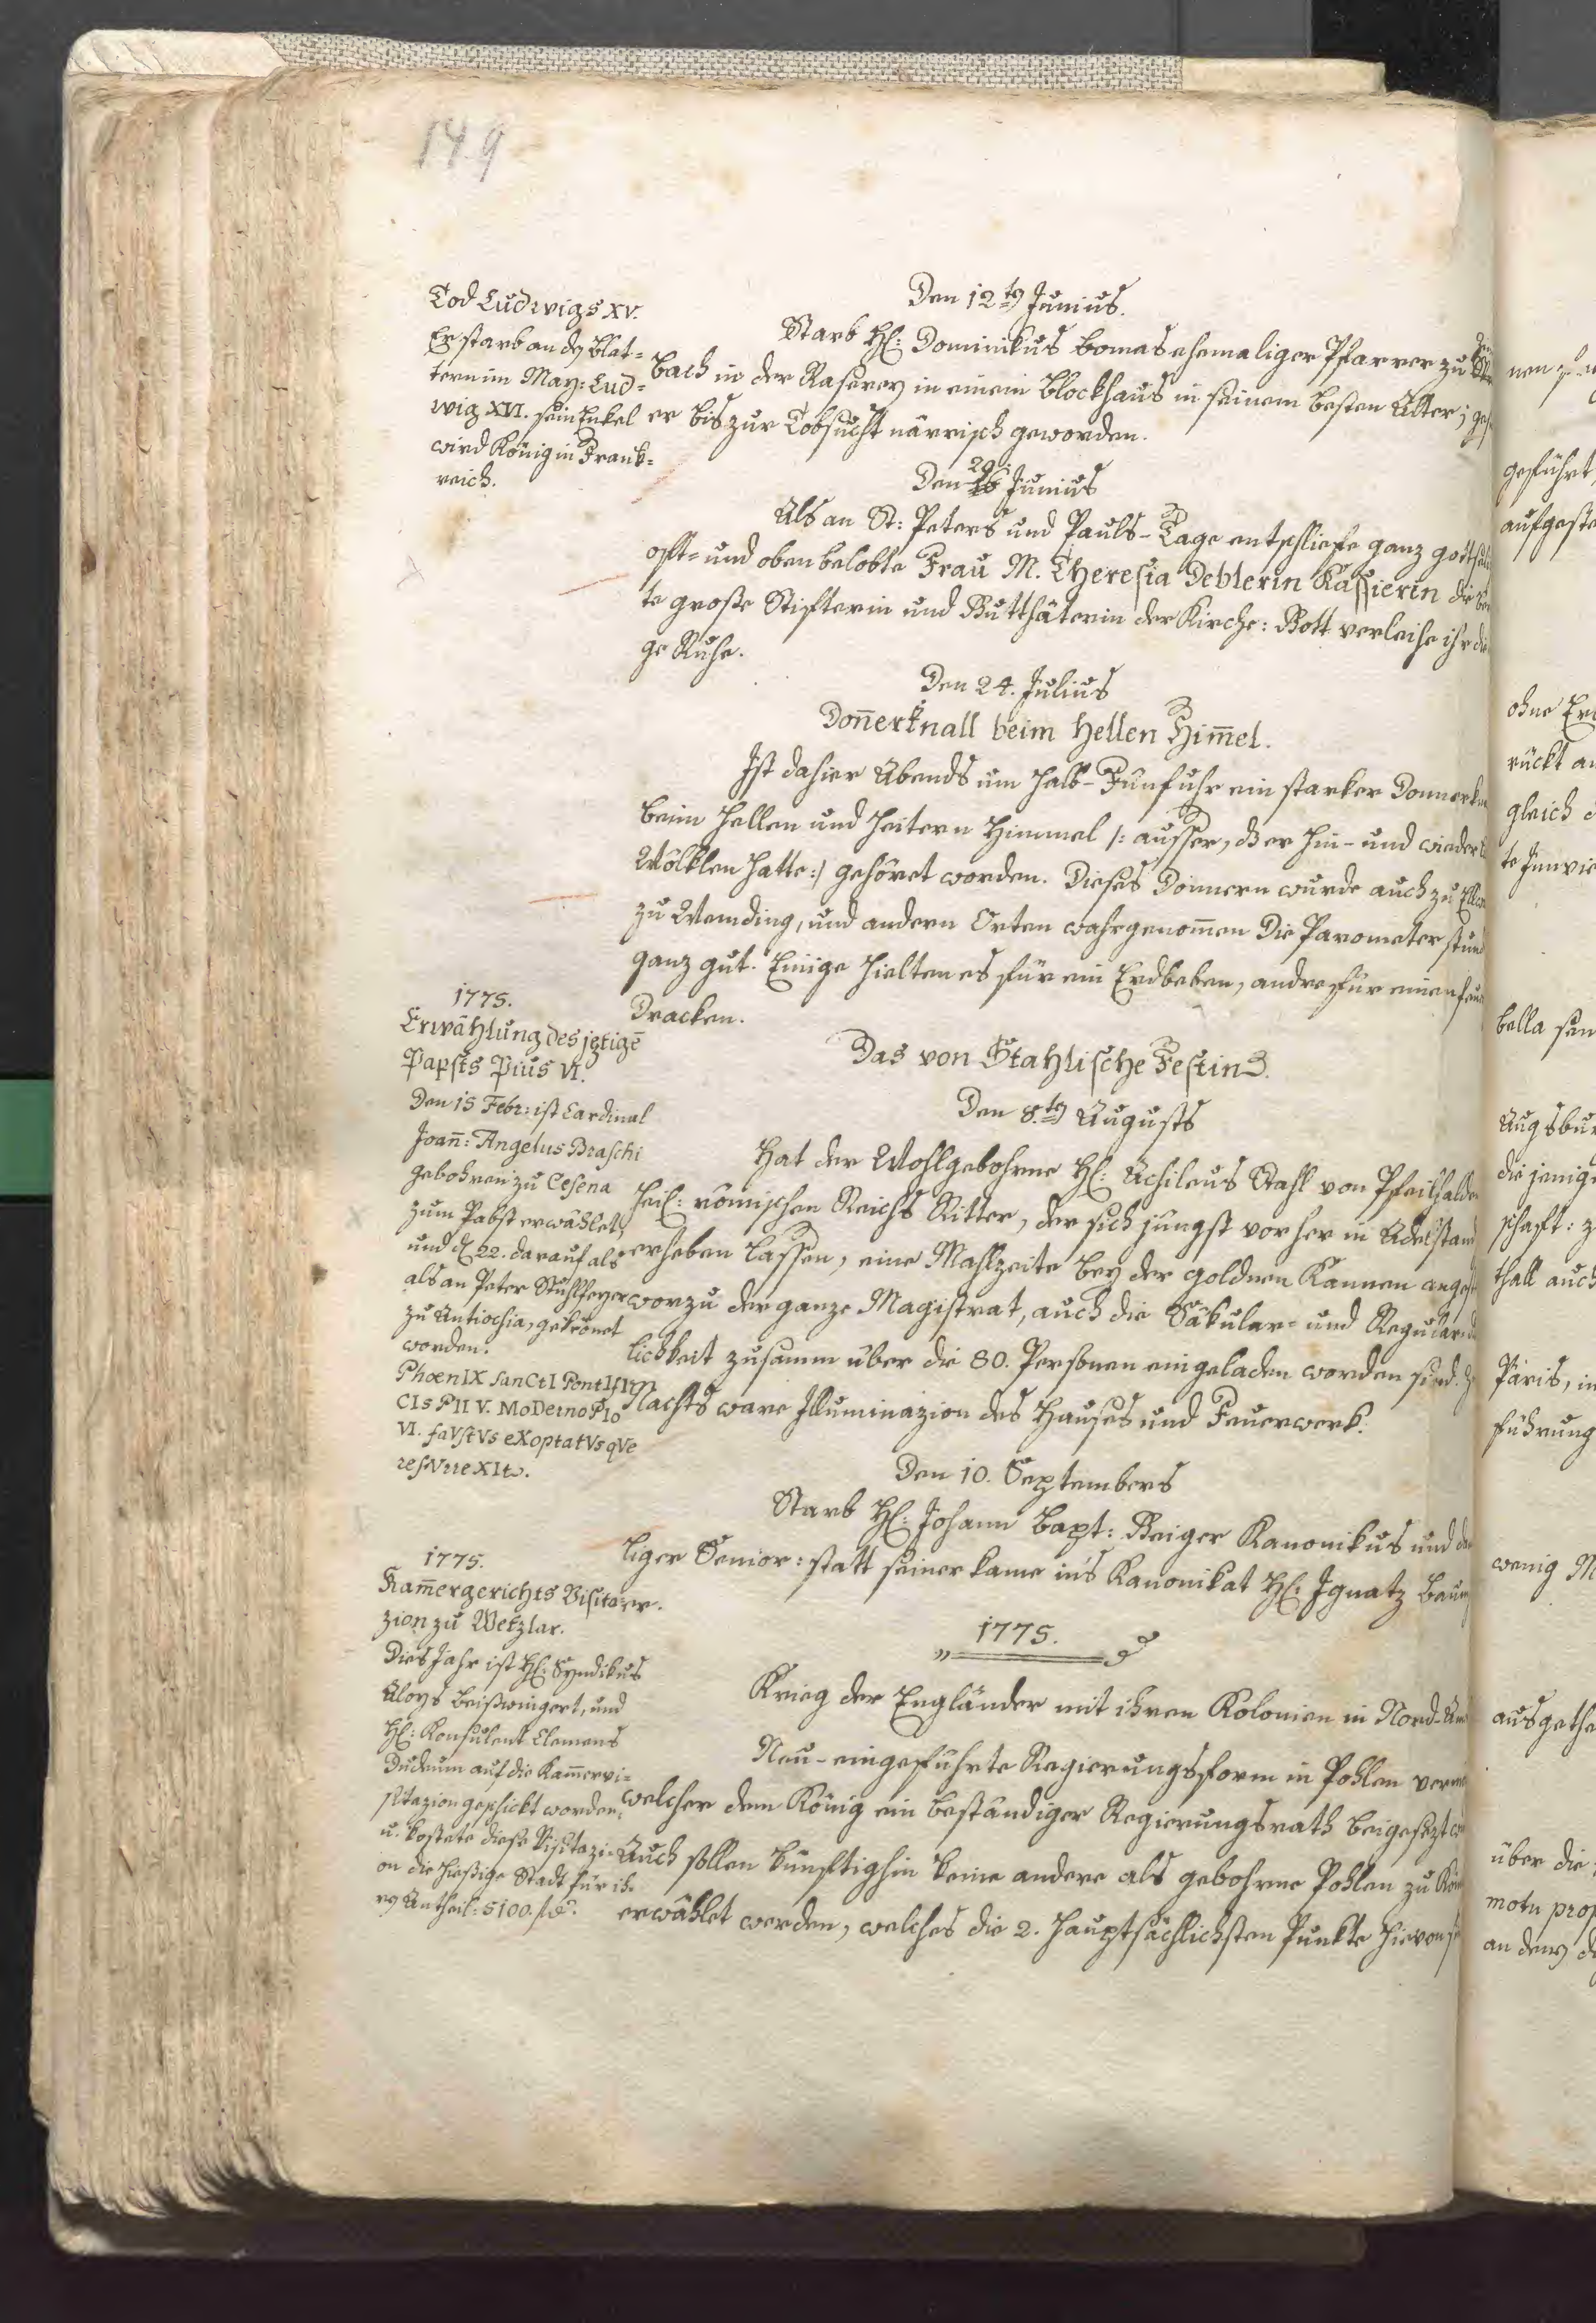 149
Tod Ludwigs XV.
Er starb an dē Blat=
tern im May: Lud=
wig XVI. sein Enkel
wird König in Frank=
reich.
Den 12ten Junius.
Starb H: Dominikus Bomas ehemaliger Pfarrer zu
bach in der Raserey in einem Blockhaus in seinem besten Alter;
er bis zur Tobsucht närrisch geworden.
Den 29. Junius
Als an St: Peters und Pauls-Tage entschliefe ganz
oft= und oben belobte Frau M. Theresia Deblerin Kassierin die
te große Stifterin und Gutthäterin der Kirche: Gott verleihe ihr die
ge Ruhe.
Den 24. Julius
Don̄erknall beim hellen Him̄el.
Ist dahier Abends um halb-Fünf uhr ein starker
beim hellen und heitern Himmel /: ausser, dß er hin- und wieder
Wölklen hatte:/ gehöret worden. Dieses Donnern wurde auch zu
zu Wemding, und andern Orten wahrgenom̄en Die Parometer
ganz gut. Einige hielten es für ein Erdbeben, andre für einen
Dracken.
1775.
Erwählung des jetigē
Papsts Pius VI.
Den 15 Febr: ist Cardinal
Joan̄: Angelus Braschi
gebohren zu Cesena
zum Pabst erwählet,
und d 22. darauf als
als an Peter Stuhlfeyer
zu Antiochia, gekrönet
worden.
PhœnIX sanCtI PontIfI
CIs PII V. MoDerno PIo
VI. faVstVs eXoptatVsqVe
resVrreXIt.
Das von Stahlische Festin.
Den 8ten Augusts
Hat der Wohlgebohrne H: Achileus Stahl von
heil: römischen Reichs Ritter, der sich jüngst vorher in
erheben lassen, eine Mahlzeite bey der goldnen Kannen
worzu der ganze Magistrat, auch die Säkular= und
lichkeit zusamm über die 80. Personen eingeladen worden sind.
Nachts ware Illuminazion des Hauses und Feuerwerk.
Den 10. Septembers
Starb H: Johann Bapt: Geiger Kanonikus und
liger Senior: statt seiner kame in's Kanonikat H: Ignatz
1775.
Kam̄ergerichts Visita-
zion zu Wetzlar.
Dies Jahr ist H: Syndikus
Aloys Beißwingert, und
H: Konsulent Clemens
Dudeum auf die Kam̄ervi=
sitazion geschickt worden,
u. kostete diese Visitazi=
on die hießige Stadt für ih=
rē Antheil: 5100. f
1775.
Krieg der Engländer mit ihren Kolonien in
Neu-eingeführte Regierungsform in Pohlen
welcher dem König ein beständiger Regierungsrath beigesezt
Auch sollen künftighin keine andere als gebohrne Pohlen zu
erwählet werden, welches die 2. hauptsächlichsten Punkte hievon
geführt,
ohne
rückt
gleich
bella
Augsbur
die jenige
schaft:
thall auch
Paris,
führung
wenig
über die
motu
an